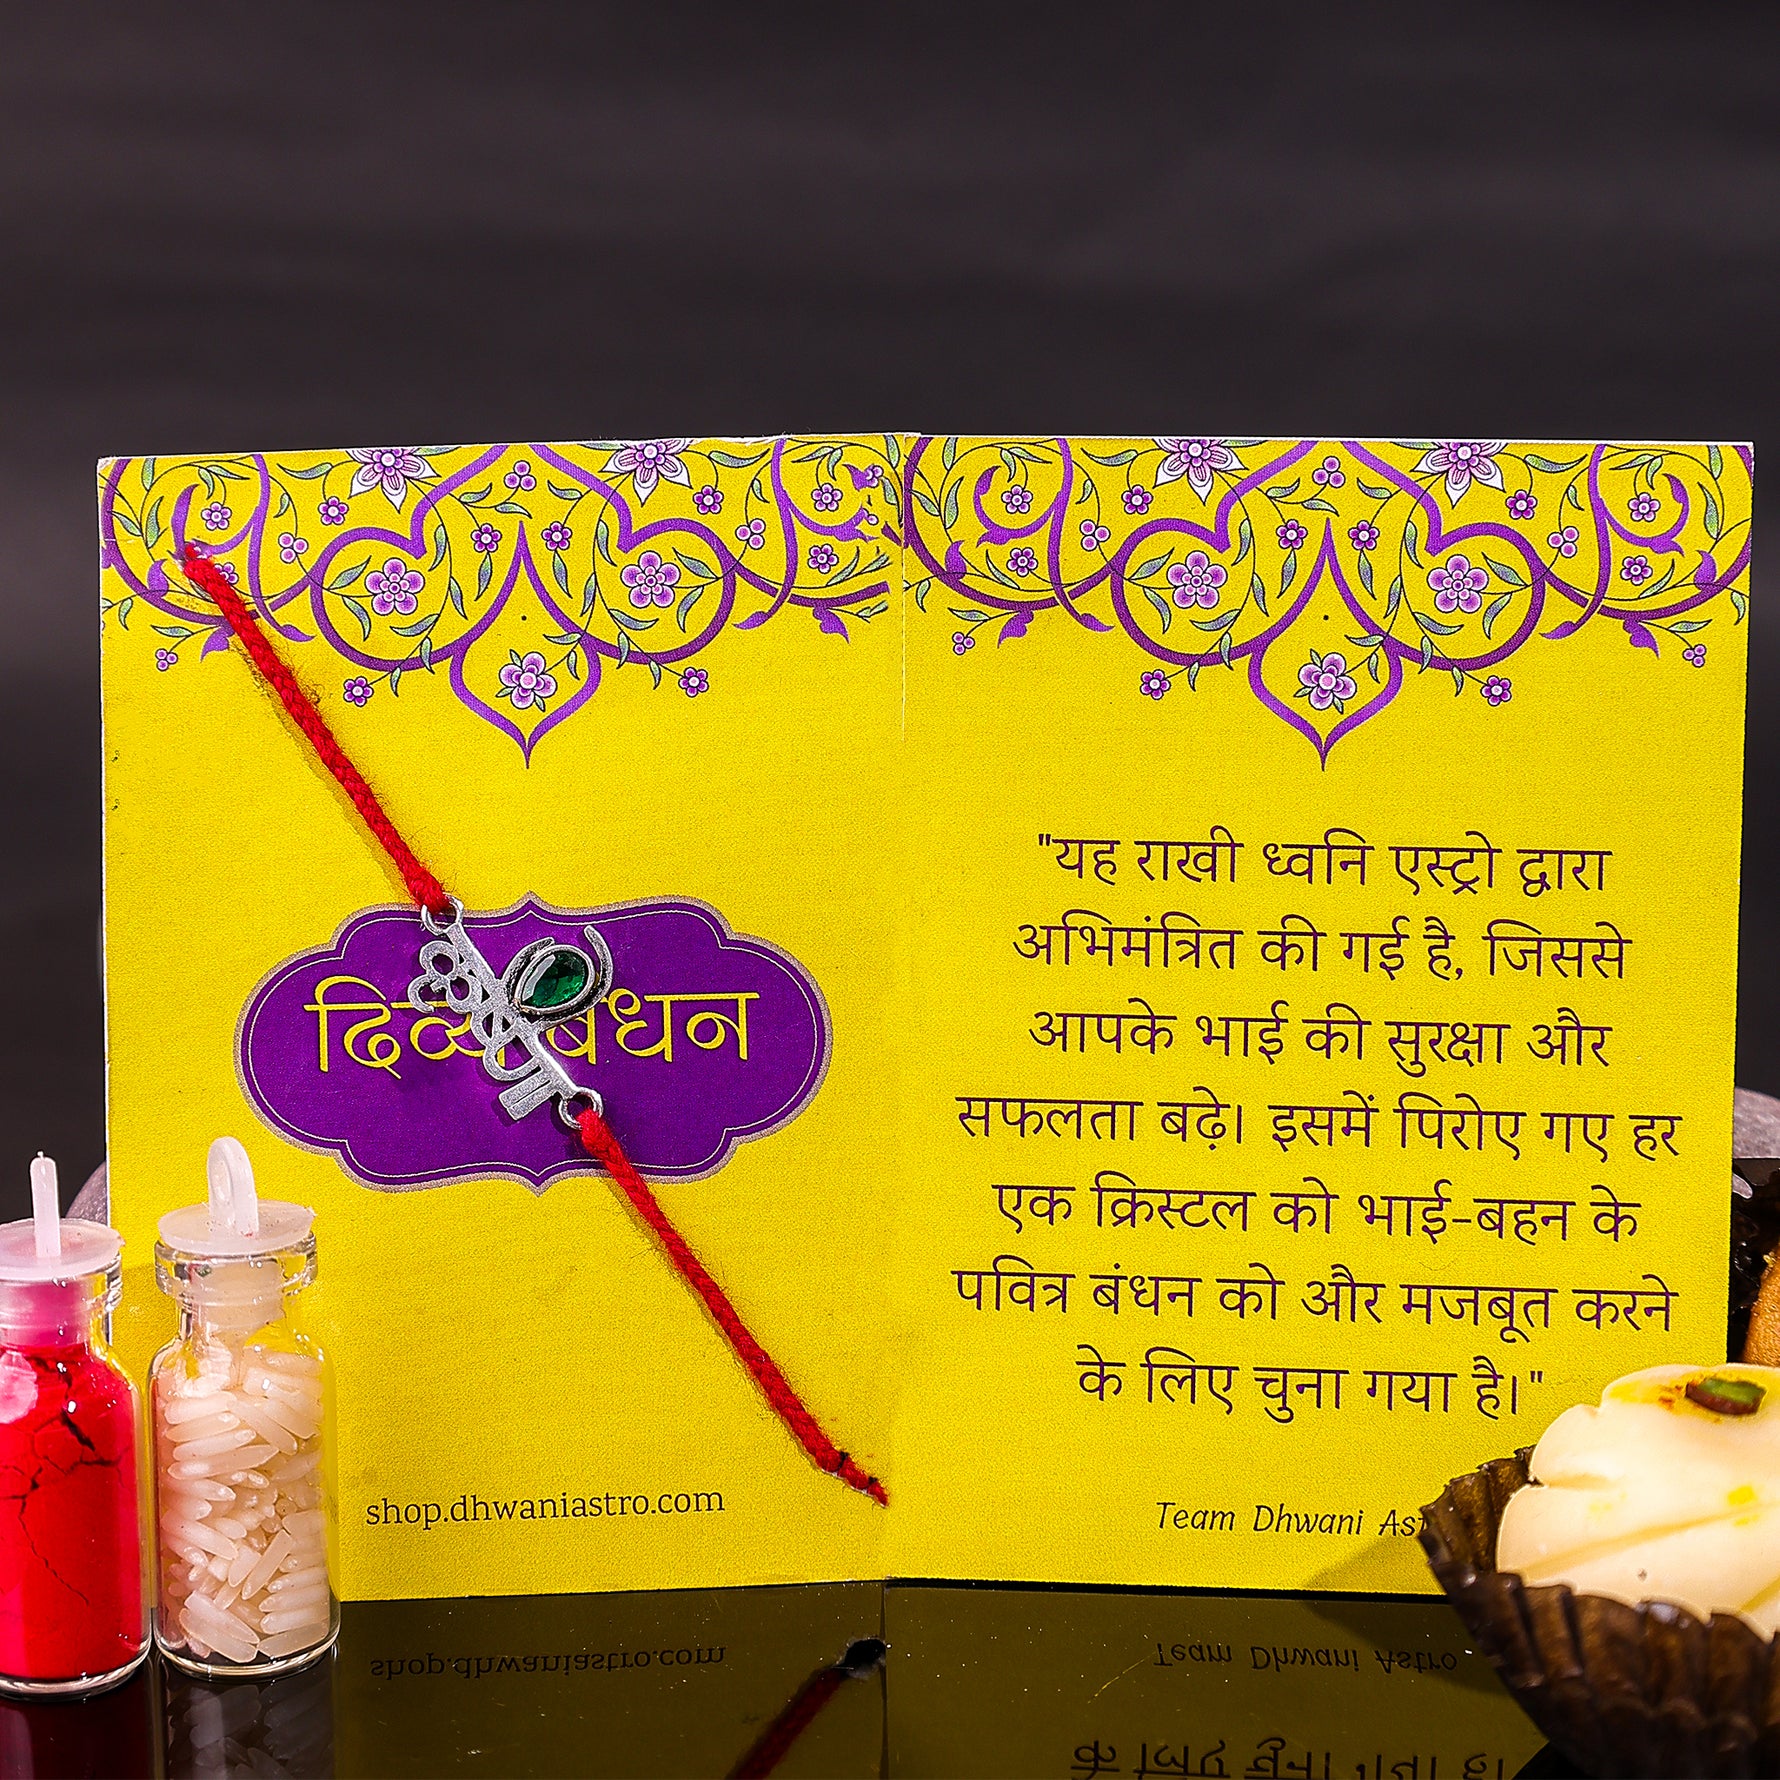 दिव्य बंधन
shop.dhwaniastro.com
"यह राखी ध्वनि एस्ट्रो द्वारा
अभिमंत्रित की गई है, जिससे
आपके भाई की सुरक्षा और
सफलता बढ़े। इसमें पिरोए गए हर
एक क्रिस्टल को भाई-बहन के
पवित्र बंधन को और मजबूत करने
के लिए चुना गया है।"
Team Dhwani Astro